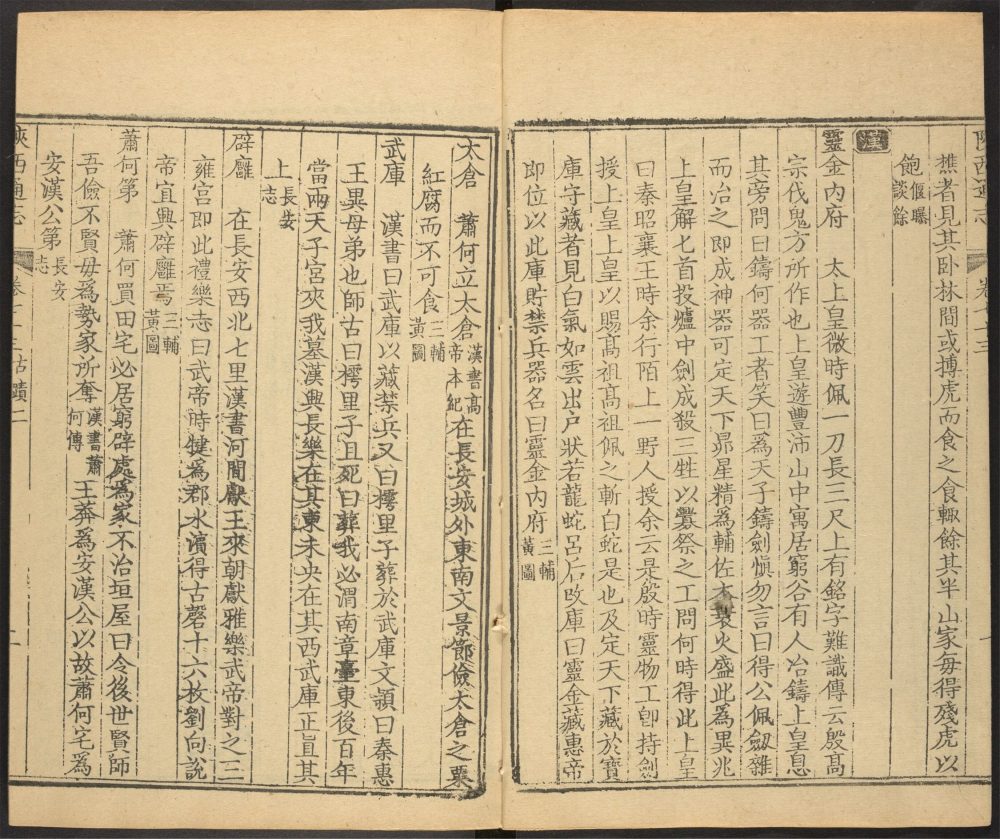 陝西通志 卷七十三
樵者見其卧林間或搏虎而食之食輙餘其半山家毎得殘虎以
飽偃曝談餘
漢
靈金内府 太上皇微時佩一刀長三尺上有銘字難識傳云殷髙
宗伐鬼方所作也上皇遊豐沛山中寓居窮谷有人冶鑄上皇息
其旁問曰鑄何器工者笑曰爲天子鑄劍愼勿言曰得公佩劒雜
而冶之即成神器可定天下昴星精爲輔佐木衰火盛此爲異兆
上皇解匕首投爐中劍成殺三牲以釁祭之工問何時得此上皇
曰秦昭襄王時余行陌上一野人授余云是殷時靈物工卽持劍
授上皇上皇以賜髙祖髙祖佩之斬白蛇是也及定天下藏於寶
庫守藏者見白氣如雲出戶狀若龍蛇呂后改庫曰靈金藏惠帝
即位以此庫貯禁兵器名曰靈金内府三輔黃圖
太倉 蕭何立太倉漢書髙帝本紀在長安城外東南文景節儉太倉之粟
紅腐而不可食三輔黃圖
武庫 漢書曰武庫以藏禁兵又曰樗里子葬於武庫文頴曰秦惠
王異母弟也師古曰樗里子且死曰葬我必渭南章臺東後百年
當兩天子宮夾我墓漢興長樂在其東未央在其西武庫正直其
上長安志
辟廱 在長安西北七里漢書河間獻王來朝獻雅樂武帝對之三
雍宮即此禮樂志曰武帝時犍爲郡水濱得古磬十六枚劉向說
帝宜興辟廱焉三輔黃圖
蕭何第 蕭何買田宅必居窮辟處爲家不治垣屋曰令後世賢師
吾儉不賢毋爲勢家所奪漢書蕭何傳王莽爲安漢公以故蕭何宅爲
安漢公第長安志
陝西通志 卷七十三古蹟二